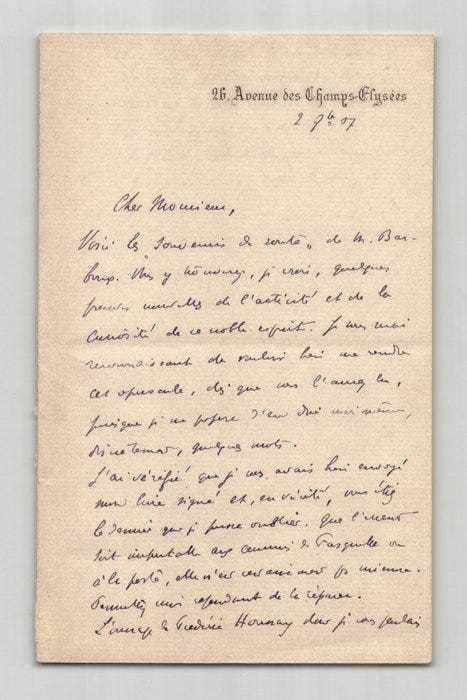 26, Avenue des Champs-Elysées
2 9bre 07
Cher Monsieur,
Voici les "Souvenirs de route" de M. Bar-
boux. Vous y trouverez, je crois, quelques
preuves nouvelles de l'activité et de la
curiosité de ce noble esprit. Je vous serai
reconnaissant de vouloir bien me rendre
cet opuscule, dès que vous l'aurez lu,
puisque je me propose d'en dire moi-même,
discrètement, quelques mots.
J'ai vérifié que je vous avais bien envoyé
mon livre signé et, en vérité, vous étiez
le dernier que je pusse oublier. Que l'erreur
soit imputable aux commis de Fasquelle ou
à la poste, elle n'est vraiment pas mienne.
Permettez moi cependant de la réparer.
L'ouvrage de Frédéric dont je vous parlais